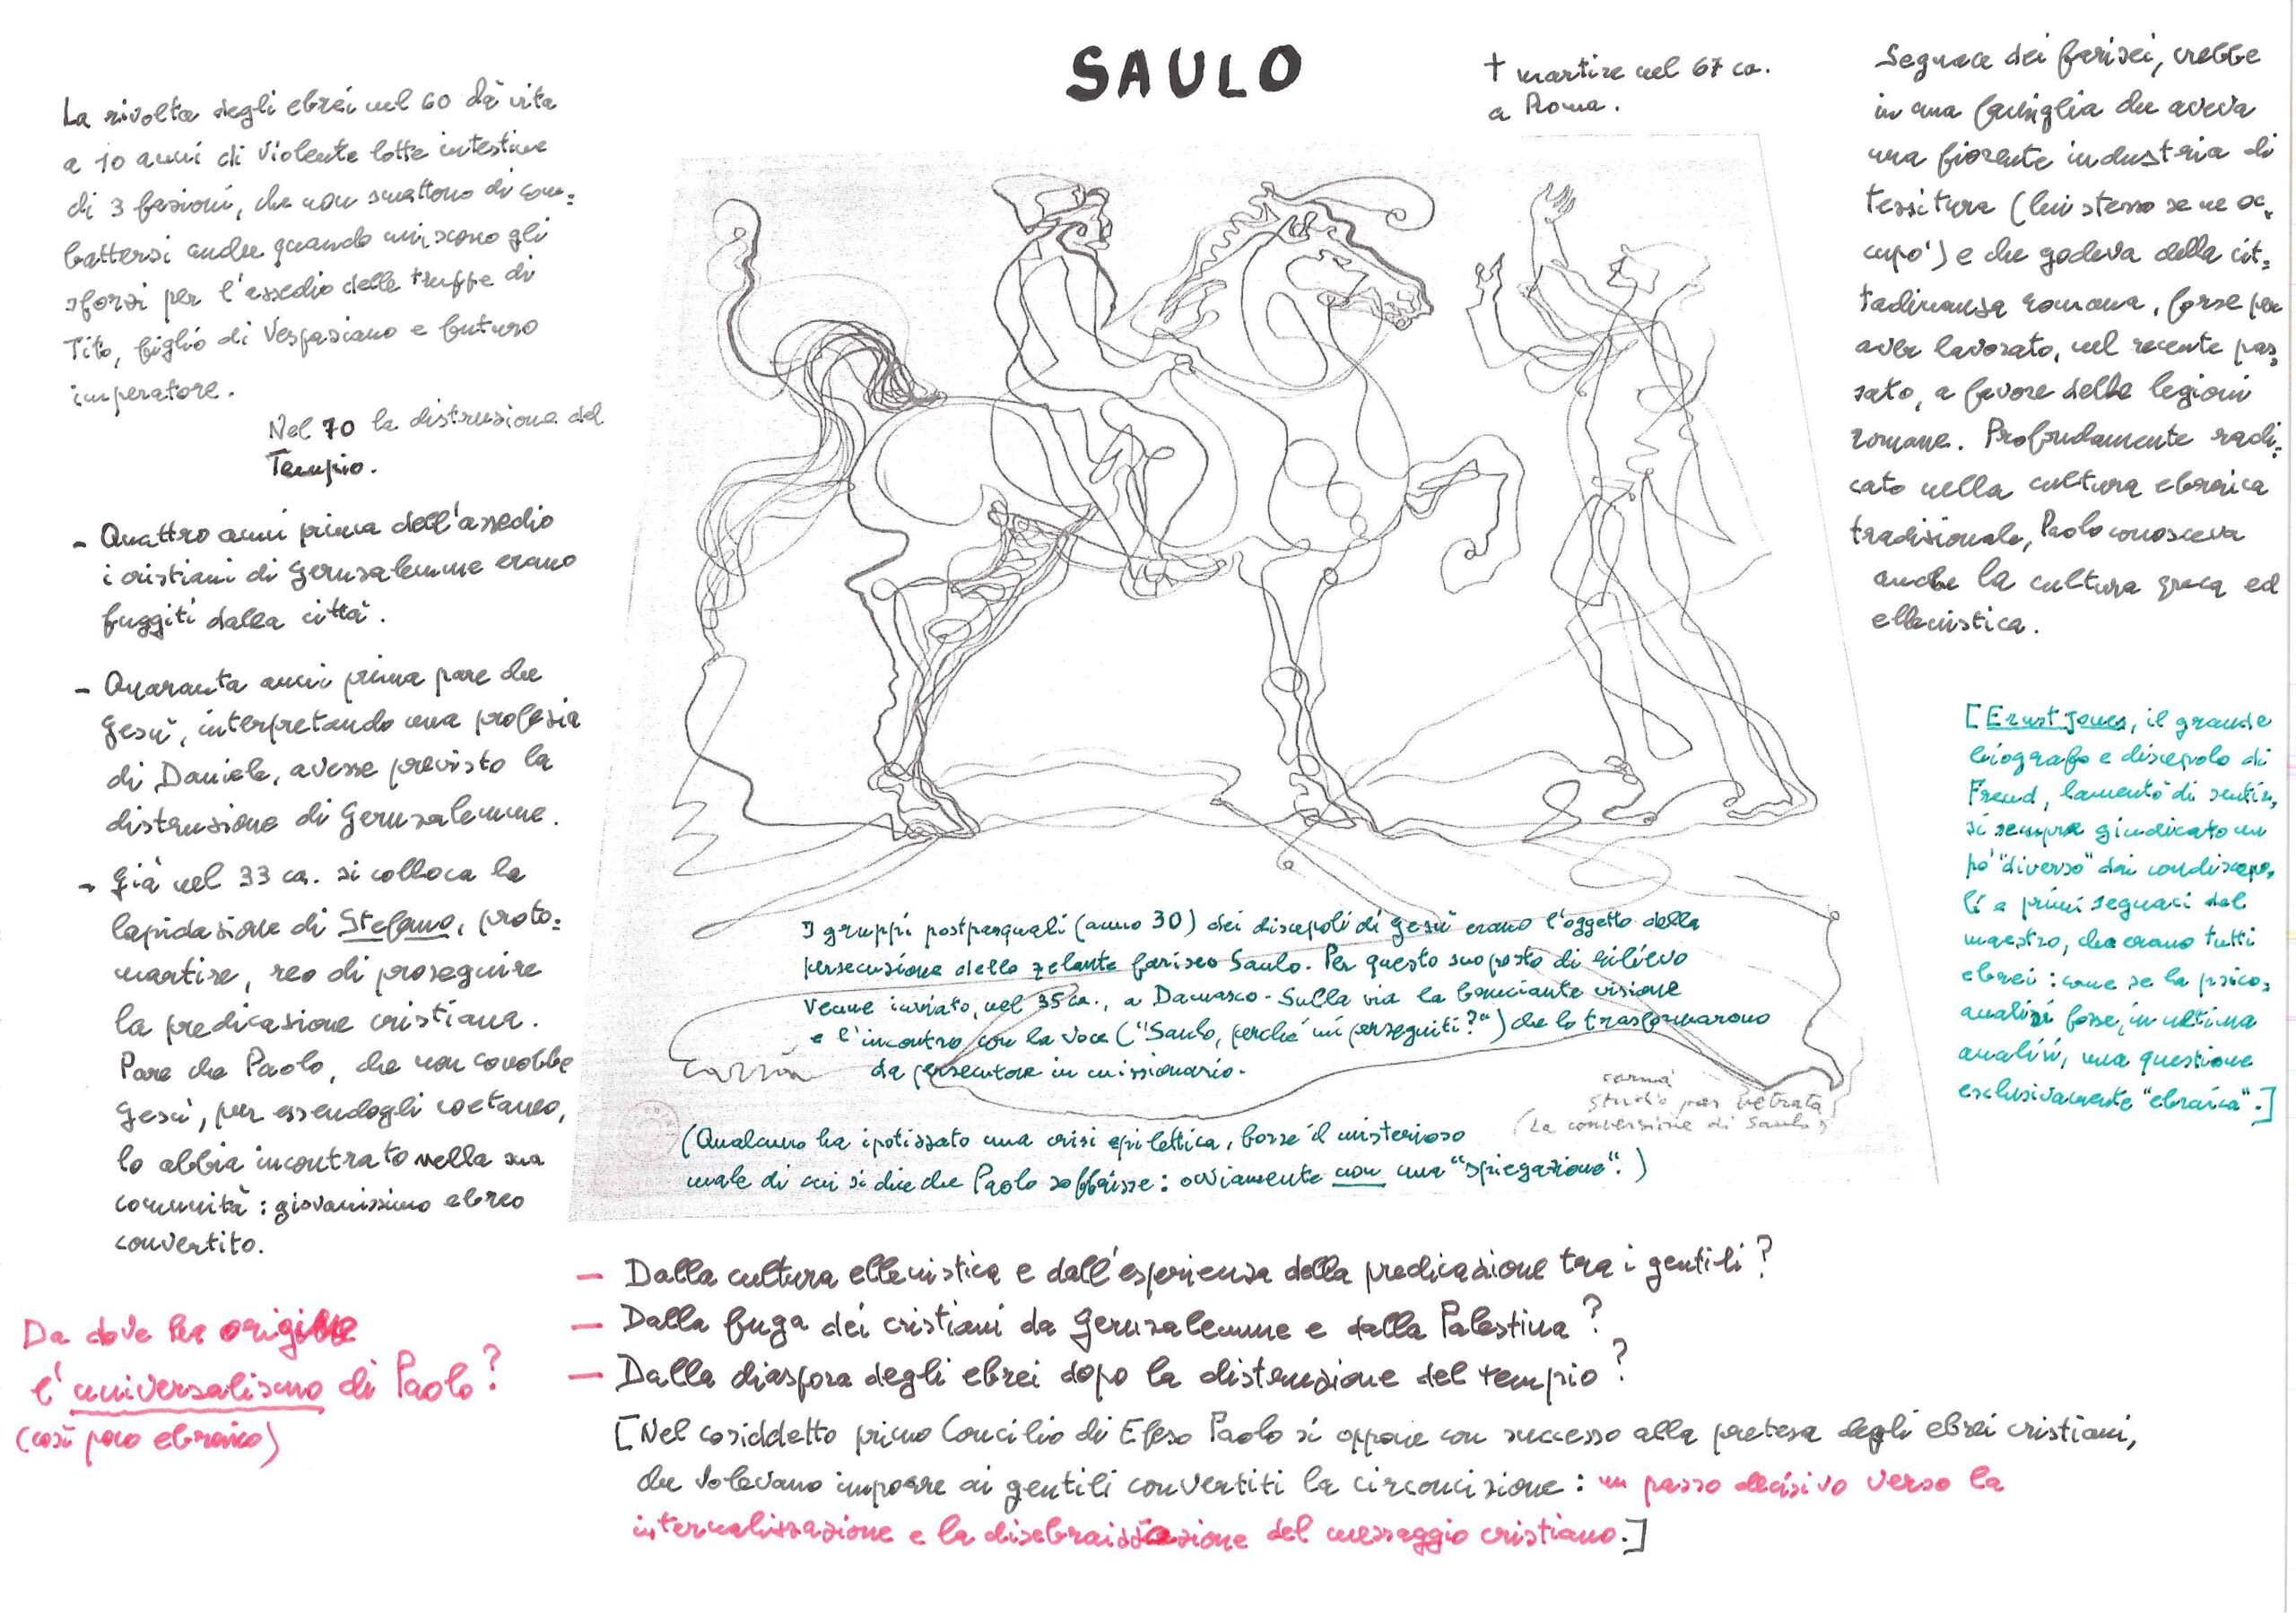 SAULO
† martire nel 67 ca.
a Roma.
La rivolta degli ebrei nel 60 dà vita
a 10 anni di violente lotte intestine
di 3 fazioni, che non smattono di com=
battersi anche quando uniscono gli
sforzi per l'assedio delle truppe di
Tito, figlio di Vespasiano e futuro
imperatore.
Nel 70 la distruzione del
Tempio.
- Quattro anni prima dell'assedio
i cristiani di Gerusalemme erano
fuggiti dalla città.
- Quaranta anni prima pare che
Gesù, interpretando una profezia
di Daniele, avesse previsto la
distruzione di Gerusalemme.
- Già nel 33 ca. si colloca la
lapidazione di Stefano, proto=
martire, reo di proseguire
la predicazione cristiana.
Pare che Paolo, che non conobbe
Gesù, pur essendogli coetaneo,
lo abbia incontrato nella sua
comunità: giovanissimo ebreo
convertito.
Segnace dei farisei, crebbe
in una famiglia che aveva
una fiorente industria di
tessitura (lui stesso se ne oc=
cupò) e che godeva della cit=
tadinanza romana, forse per
aver lavorato, nel recente pas=
sato, a favore delle legioni
romane. Profondamente radi=
cato nella cultura ebraica
tradizionale, Paolo conosceva
anche la cultura greca ed
ellenistica.
[Ernst Jones, il grande
biografo e discepolo di
Freud, lamentò di sentir=
si sempre giudicato un
po' "diverso" dai condiscepo=
li e primi seguaci del
maestro, che erano tutti
ebrei: come se la psico=
analisi fosse, in ultima
analisi, una questione
esclusivamente "ebraica".]
I gruppi postpasquali (anno 30) dei discepoli di Gesù erano l'oggetto della
persecuzione dello zelante fariseo Saulo. Per questo suo posto di rilievo
venne inviato, nel 35 ca., a Damasco. Sulla via la bruciante visione
e l'incontro con la voce ("Saulo, perché mi perseguiti?") che lo trasformarono
da persecutore in missionario.
Carrà
carrà
studio per vetrata
(La conversione di Saulo)
(Qualcuno ha ipotizzato una crisi epilettica, forse il misterioso
male di cui si dice che Paolo soffrisse: ovviamente non una "spiegazione".)
Da dove ha origine
l'universalismo di Paolo?
(così poco ebraico)
- Dalla cultura ellenistica e dall'esperienza della predicazione tra i gentili?
- Dalla fuga dei cristiani da Gerusalemme e dalla Palestina?
- Dalla diaspora degli ebrei dopo la distruzione del tempio?
[Nel cosiddetto primo Concilio di Efeso Paolo si oppone con successo alla pretesa degli ebrei cristiani,
che volevano imporre ai gentili convertiti la circoncisione: un passo decisivo verso la
internalizzazione e la disebraizzazione del messaggio cristiano.]